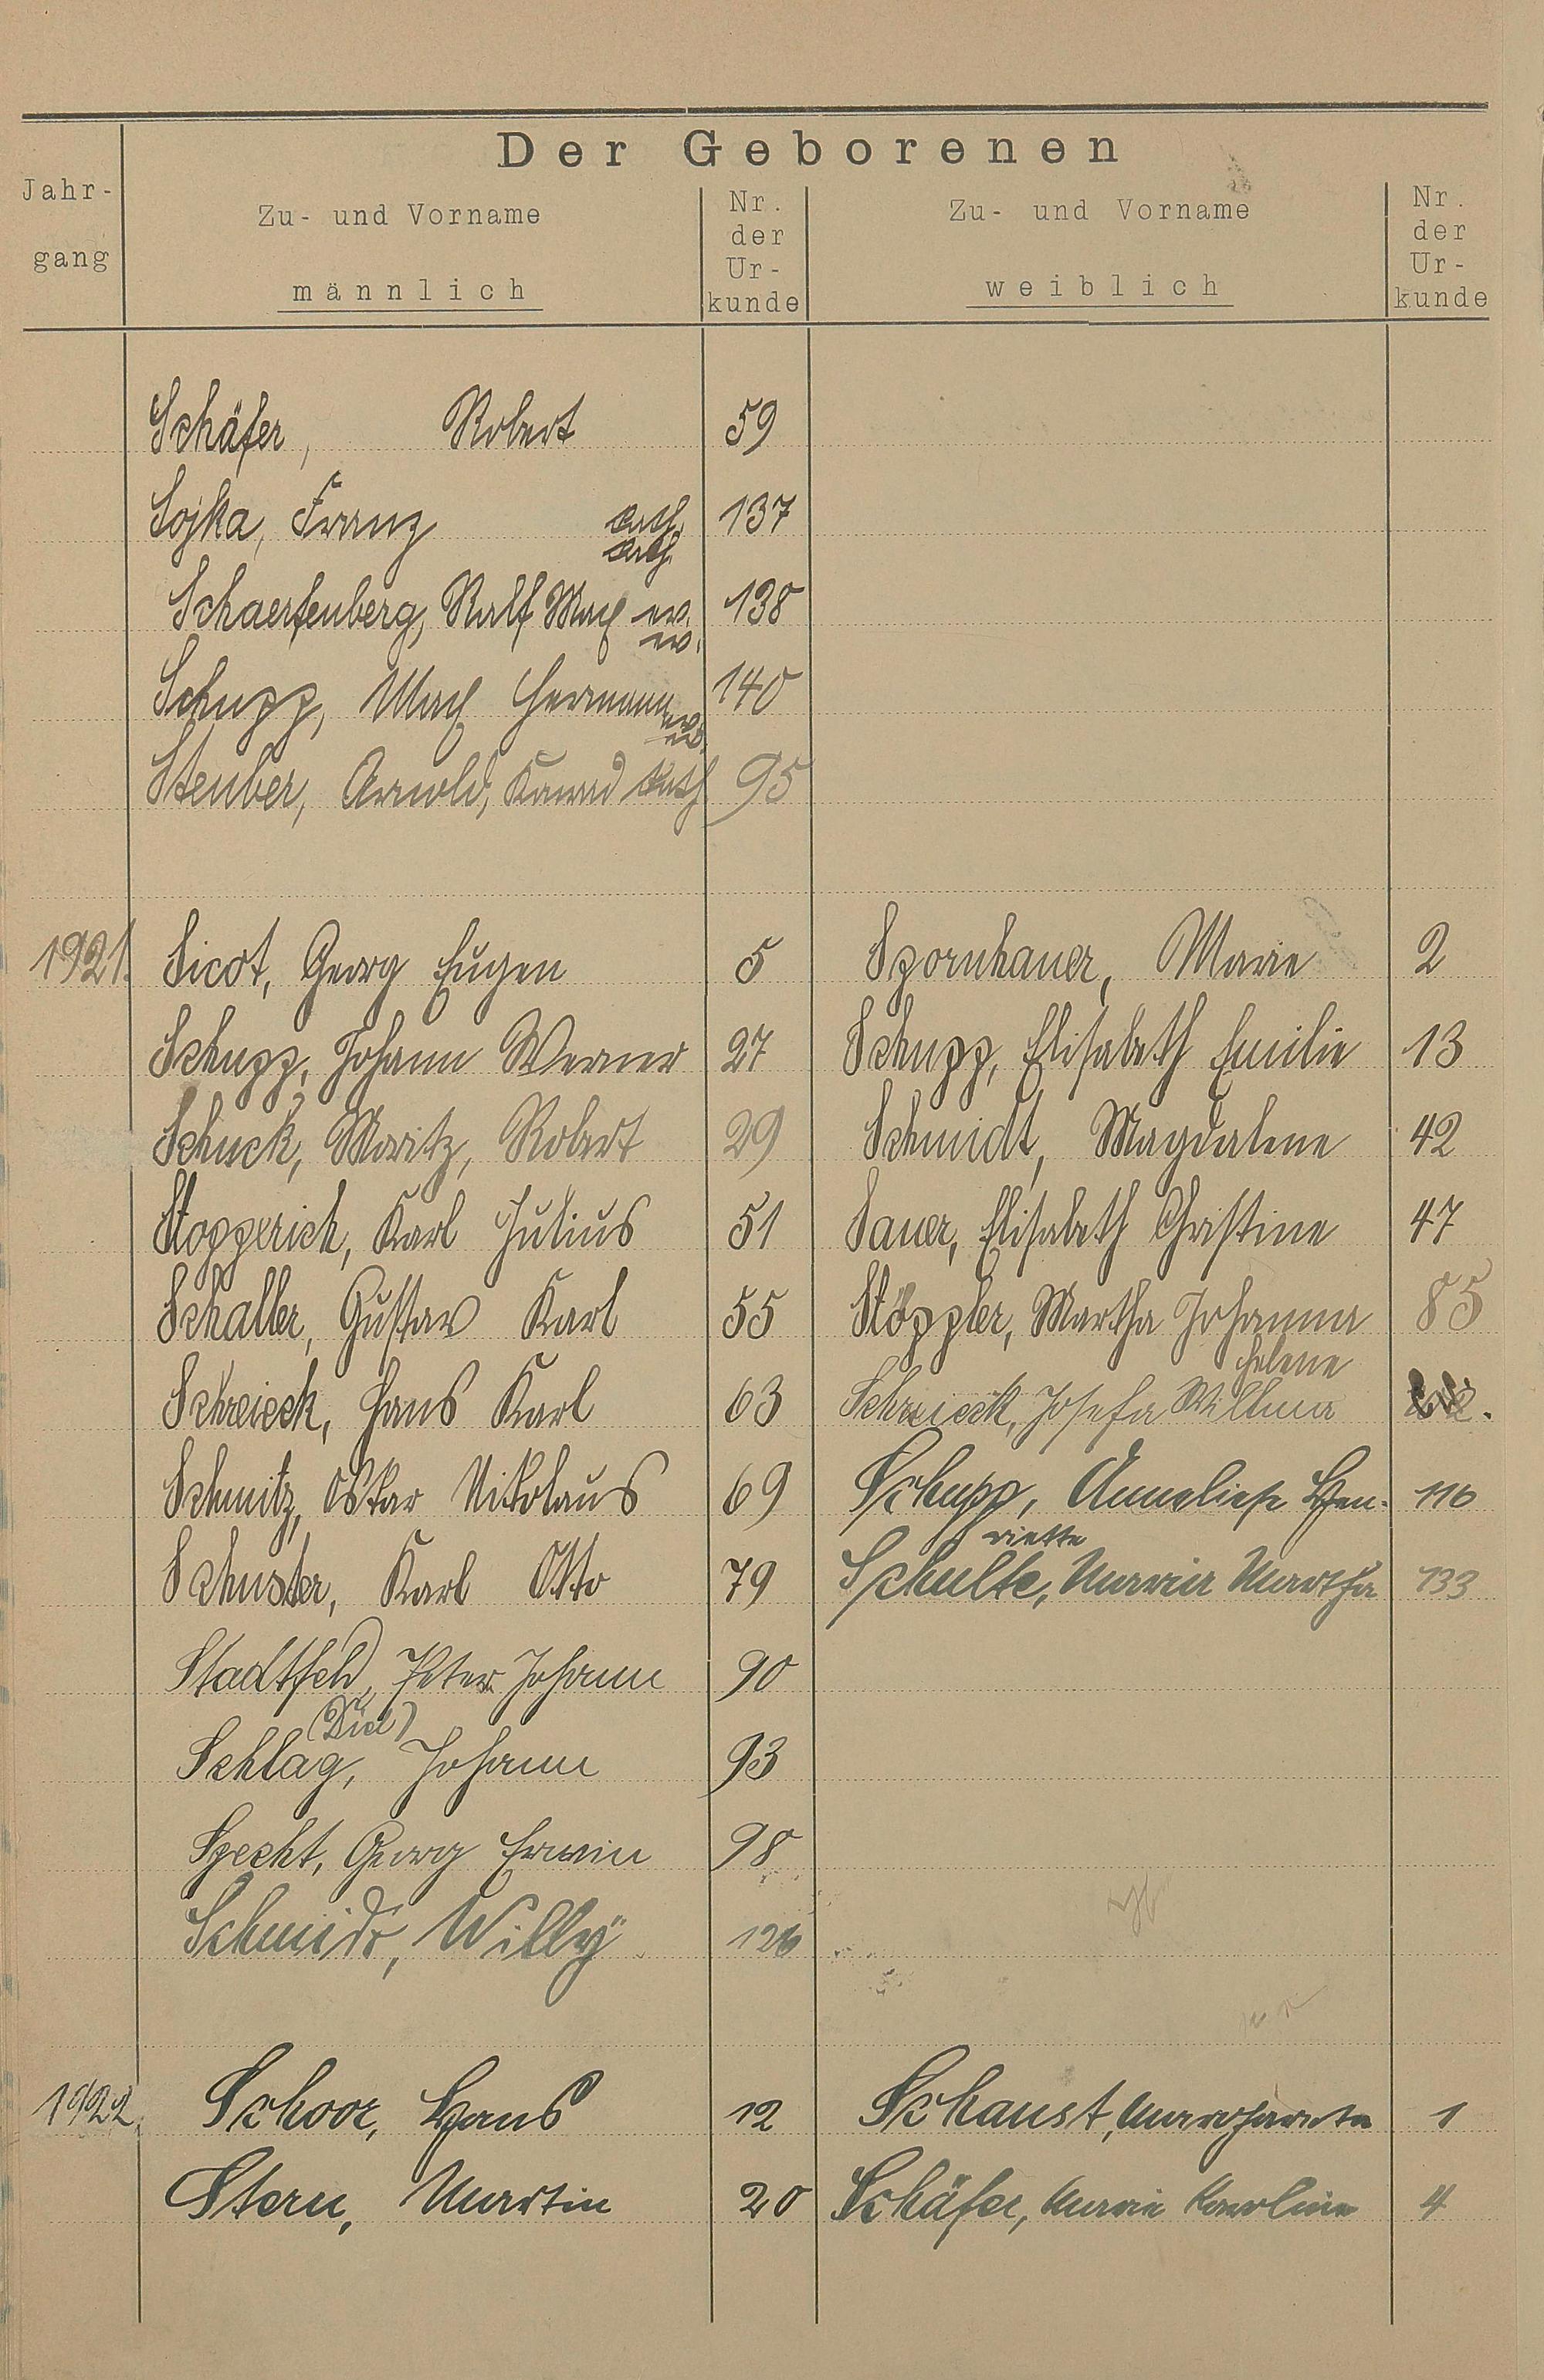 Der Geborenen
Jahr-
gang
Zu- und Vorname
männlich
Nr.
der
Ur-
kunde
Zu- und Vorname
weiblich
Nr.
der
Ur-
kunde
Schäfer, Robert 59
Sojka, Franz kath. 137
kath.
Schaerfenberg, Ralf Max ev. 138
ev.
Schupp, Max Hermann ev. 140
ev.
Steuber, Arnold, Konrad kath 95
1921. Sicot, Georg Eugen 5 Spornhauer, Marie 2
Schupp, Johann Werner 27 Schupp, Elisabeth Emilie 13
Schuck, Moritz, Robert 29 Schmidt, Magdalene 42
Stopperich, Karl Julius 51 Sauer, Elisabeth Christine 47
Schaller, Gustav Karl 55 Stöppler, Martha Johanna 85
Helene
Schreieck, Hans Karl 63 Schreieck, Josefa Wilma
Schmitz, Oskar Nikolaus 69 Schupp, Anneliese Hen- 116
riette
Schuster, Karl Otto 79 Schulte, Maria Martha 133
Stadtfeld, Peter Johann 90
(Diel)
Schlag, Johann 93
Specht, Georg Erwin 98
Schmidt, Willy 126
1922. Schoor, Hans 12 Schaust, Margareta 1
Stern, Martin 20 Schäfer, Marie Karoline 4